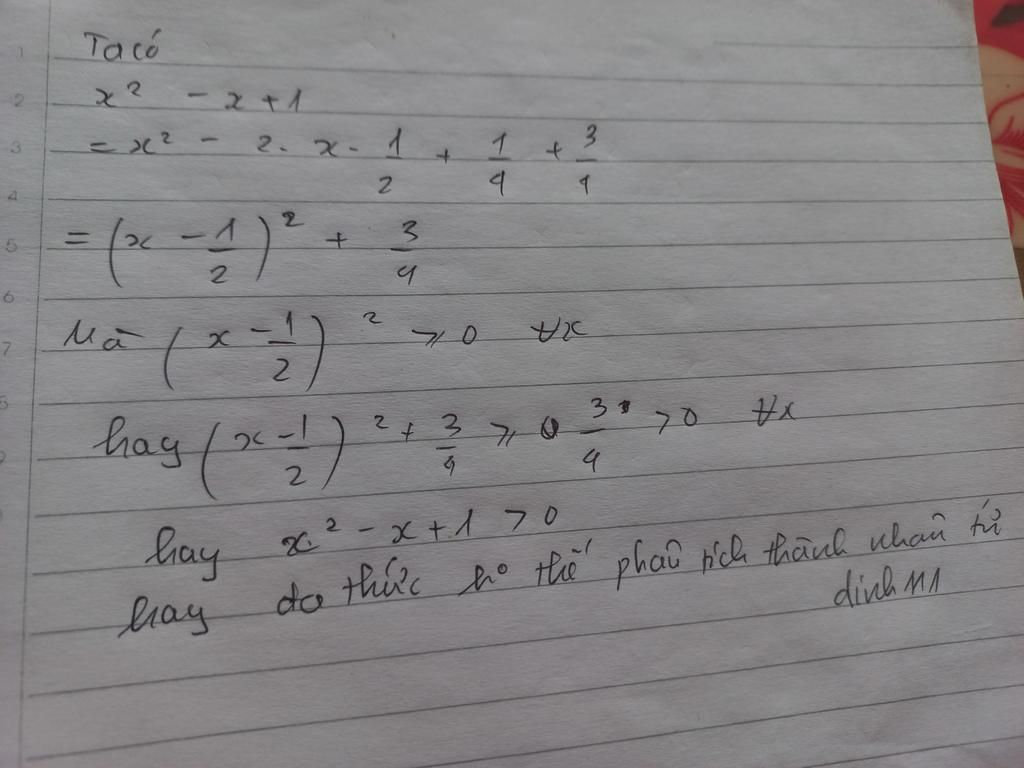 Ta có
x² - x + 1
= x² - 2 . x . 1/2 + 1/4 + 3/4
= (x - 1/2)² + 3/4
Mà (x - 1/2)² ≥ 0 ∀x
hay (x - 1/2)² + 3/4 ≥ 3/4 > 0 ∀x
hay x² - x + 1 > 0
hay đa thức ko thể phân tích thành nhân tử